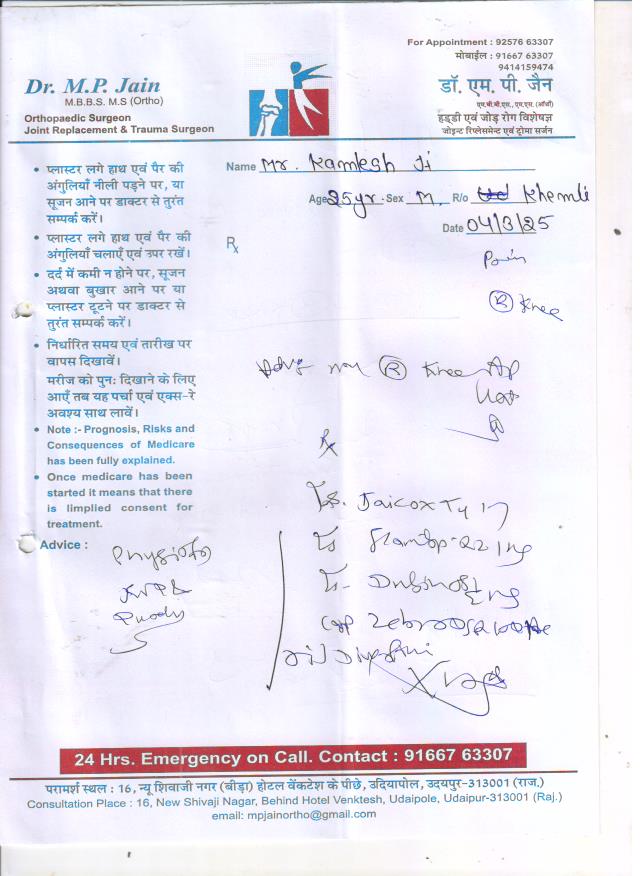 For Appointment : 92576 63307
मोबाईल : 91667 63307
9414159474
Dr. M.P. Jain
M.B.B.S. M.S (Ortho)
Orthopaedic Surgeon
Joint Replacement & Trauma Surgeon
डॉ. एम. पी. जैन
एम.बी.बी.एस., एम.एस. (ऑर्थो)
हड्डी एवं जोड़ रोग विशेषज्ञ
जोइन्ट रिप्लेसमेन्ट एवं ट्रोमा सर्जन
Name Mr. Kamlesh Ji
Age 25yr. Sex M. R/o Khemli
Date 04/3/25
• प्लास्टर लगे हाथ एवं पैर की
अंगुलियाँ नीली पड़ने पर, या
सूजन आने पर डाक्टर से तुरंत
सम्पर्क करें।
• प्लास्टर लगे हाथ एवं पैर की
अंगुलियाँ चलाएँ एवं उपर रखें।
• दर्द में कमी न होने पर, सूजन
अथवा बुखार आने पर या
प्लास्टर टूटने पर डाक्टर से
तुरंत सम्पर्क करें।
• निर्धारित समय एवं तारीख पर
वापस दिखावें।
मरीज को पुनः दिखाने के लिए
आएँ तब यह पर्चा एवं एक्स-रे
अवश्य साथ लावें।
• Note :- Prognosis, Risks and
Consequences of Medicare
has been fully explained.
• Once medicare has been
started it means that there
is limplied consent for
treatment.
Advice :
Physioto
Rx
Pain
(R) Knee
(R) Knee AP
Rx
24 Hrs. Emergency on Call. Contact : 91667 63307
परामर्श स्थल : 16, न्यू शिवाजी नगर (बीड़ा) होटल वेंकटेश के पीछे, उदियापोल, उदयपुर-313001 (राज.)
Consultation Place : 16, New Shivaji Nagar, Behind Hotel Venktesh, Udaipole, Udaipur-313001 (Raj.)
email: mpjainortho@gmail.com